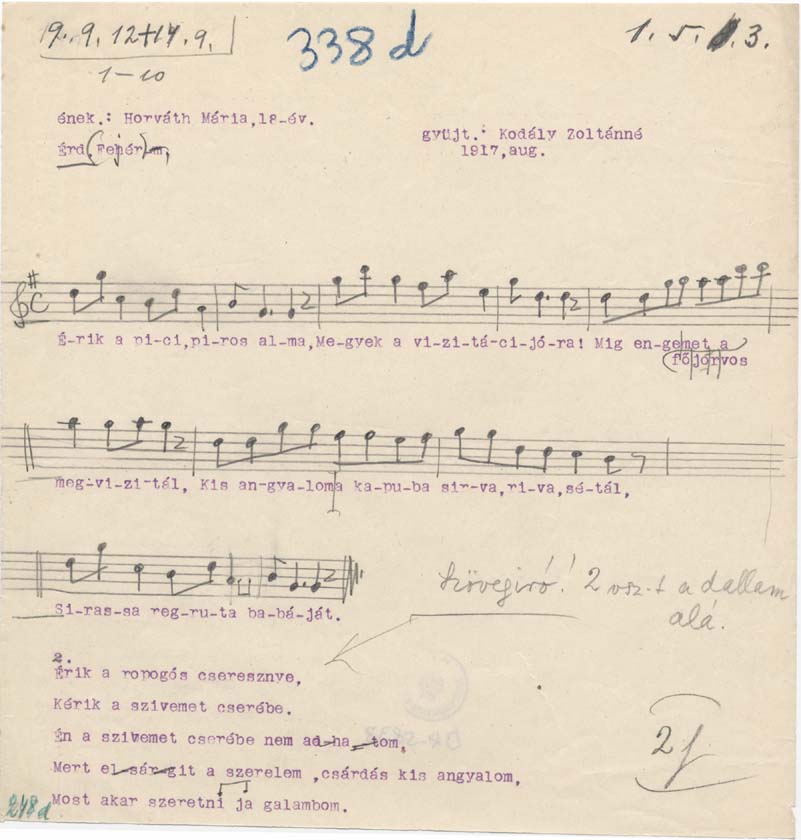 9.9.12+14.9.
1-10
338 d
1. 5. 3.
ének.: Horváth Mária,18-év.
Érd(Fejér)m,
gyüjt.: Kodály Zoltánné
1917,aug.
É-rik a pi-ci,pi-ros al-ma,Me-gyek a vi-zi-tá-ci-jó-ra! Mig en-gemet a
főjórvos
meg-vi-zi-tál, Kis an-gya-loma ka-pu-ba sir-va,ri-va,sé-tál,
Si-ras-sa reg-ru-ta ba-bá-ját.
Szövegíró! 2 vsz.-t a dallam
alá.
2.
Érik a ropogós cseresznve,
Kérik a szivemet cserébe.
Én a szivemet cserébe nem ad-ha tom,
Mert el-sár-git a szerelem ,csárdás kis angyalom,
Most akar szeretni ja galambom.
248 d